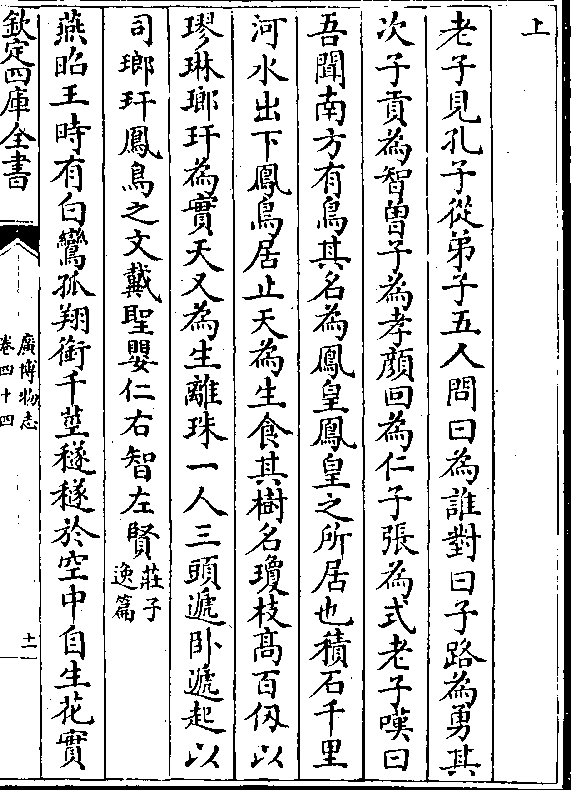 上
老子見孔子從弟子五人問曰為誰對曰子路為勇其
次子貢為智曽子為孝顔回為仁子張為式老子嘆曰
吾聞南方有鳥其名為鳳皇鳳皇之所居也積石千里
河水出下鳳鳥居止天為生食其樹名瓊枝髙百仭以
璆琳瑯玕為實天又為生離珠一人三頭遞卧遞起以
司瑯玕鳳鳥之文戴聖嬰仁右智左賢莊子逸篇
燕昭王時有白鸞孤翔銜千莖穟穟於空中自生花實
欽定四庫全書
廣博物志
卷四十四
十一